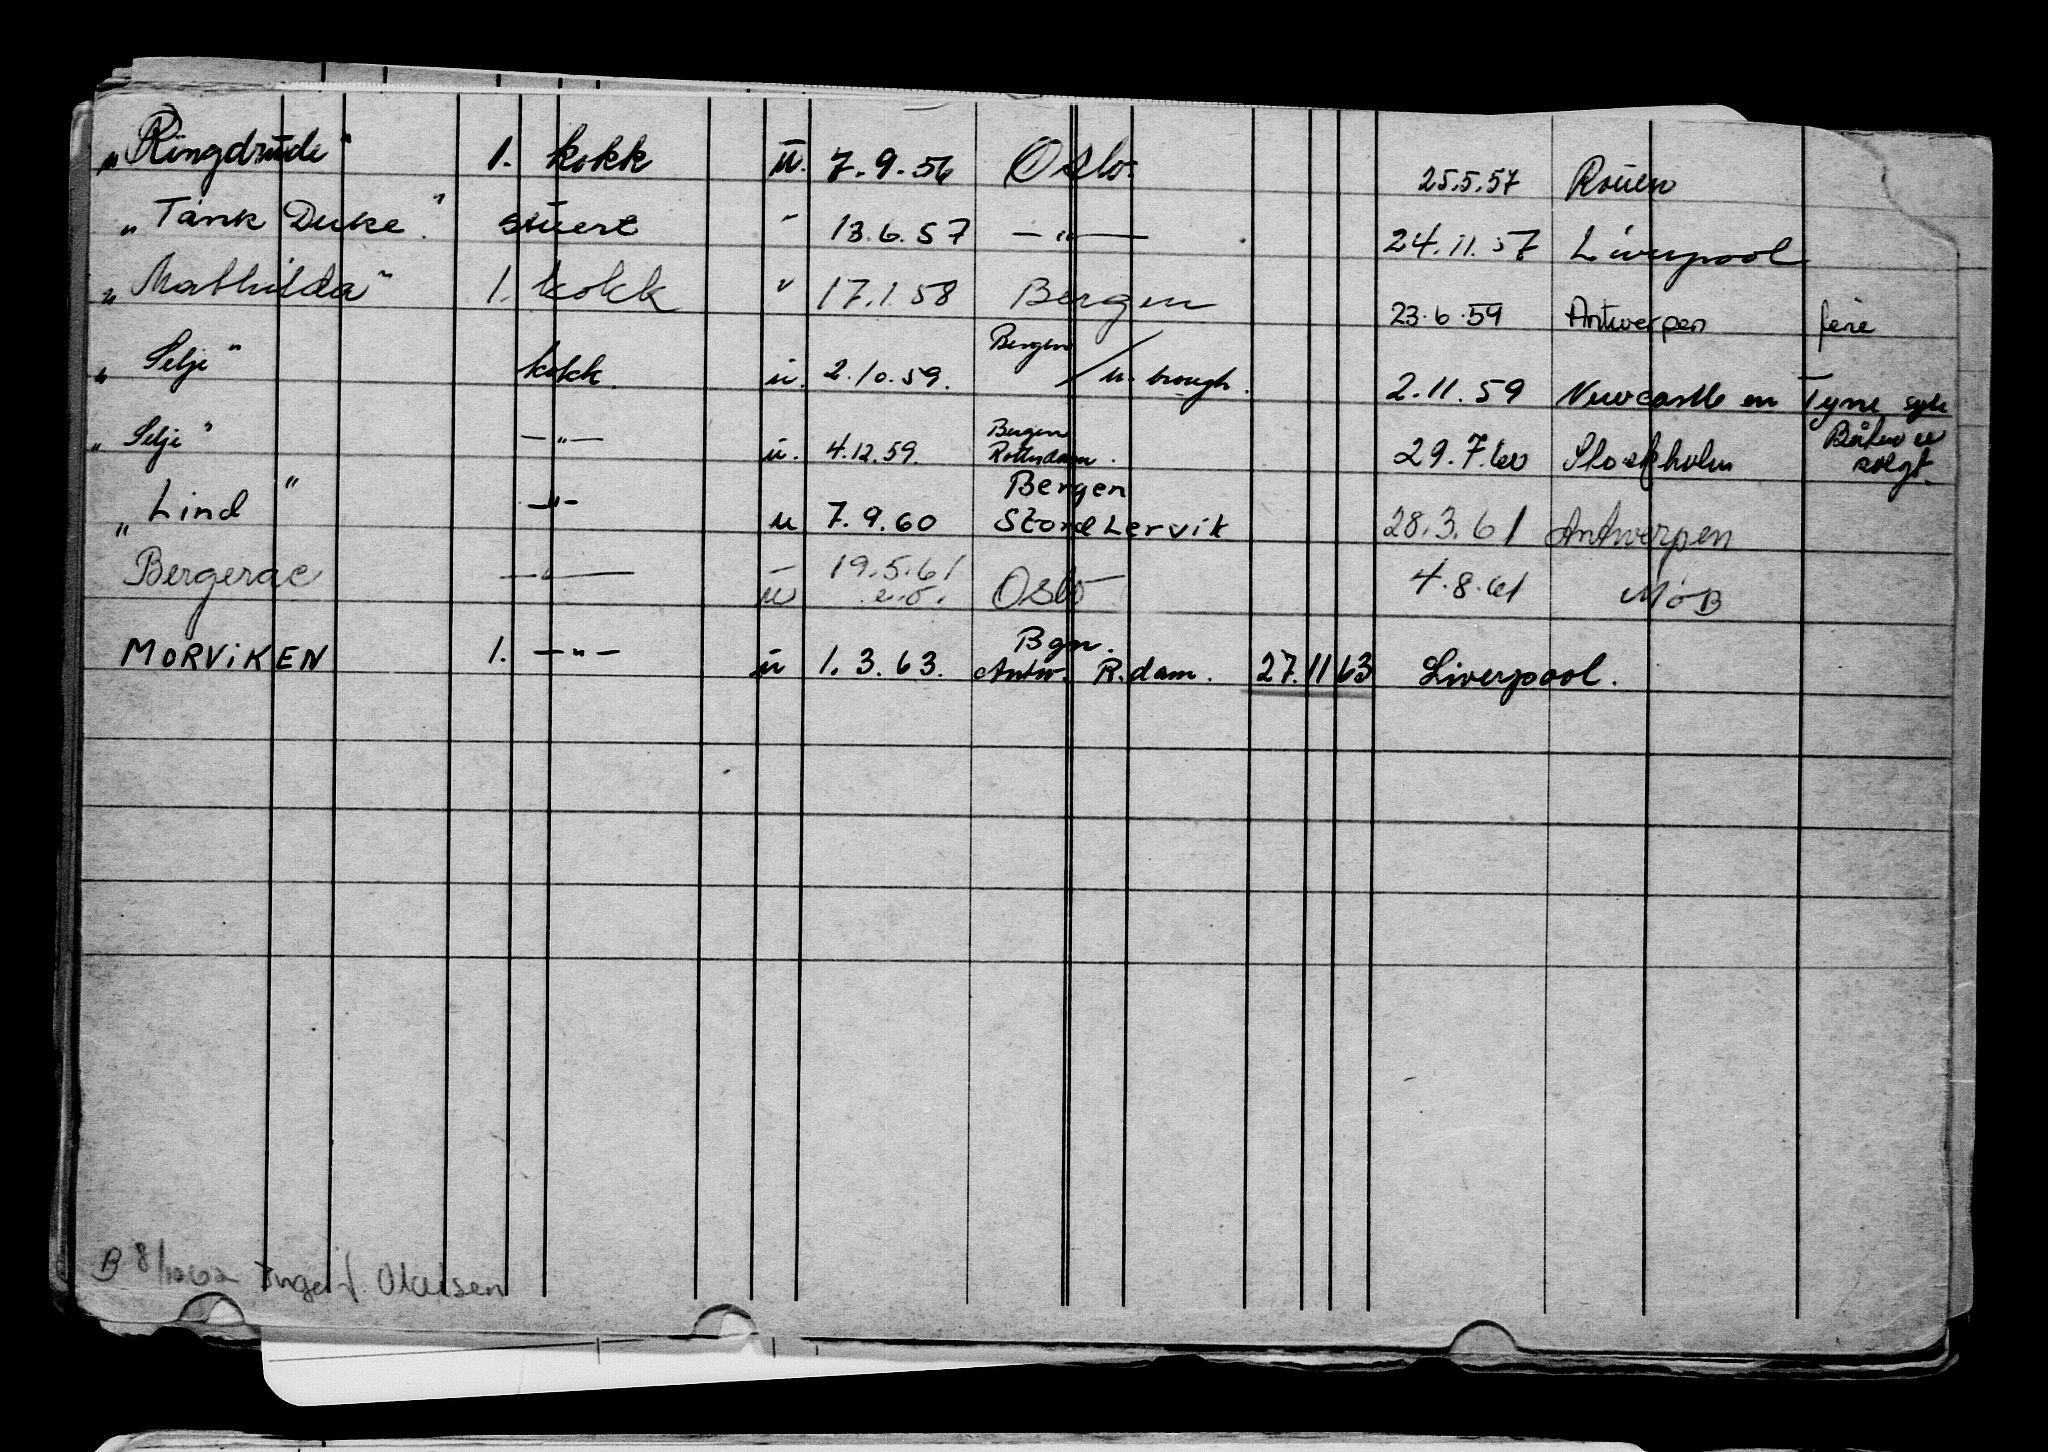 „Ringdrude" 1. kokk u. 7.9.56 Oslo. 25.5.57 Rouen
„Tank Duke." stuert " 13.6.57 —"— 24.11.57 Liverpool
„Mathilda" 1. kokk " 17.1.58 Bergen 23.6.59 Antwerpen ferie
„Selje" kokk. u. 2.10.59. Bergen / M.brough. 2.11.59 Newcastle on Tyne syk
„Selje" —"— u. 4.12.59. Bergen Rotterdam. 29.7.60 Stockholm Båten er solgt.
„Lind" —"— u 7.9.60 Bergen Stord Lervik 28.3.61 Antwerpen
Bergerac —"— u 19.5.61 e.o. Oslo 4.8.61 MöB
MORVIKEN 1. —"— u 1.3.63. Bgn. Antw. R.dam. 27.11 63 Liverpool.
B 8/10 62 Inga